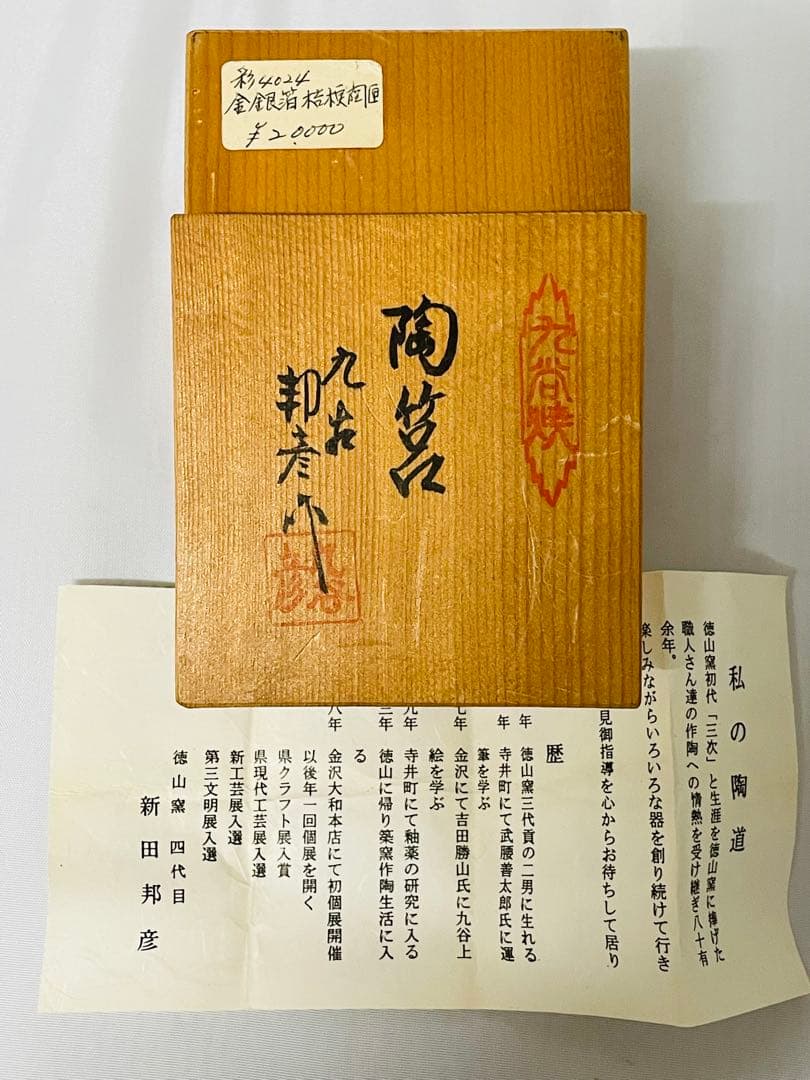 彩4024
金銀箔桔梗陶匣
¥20.000
九谷焼
陶筥
九谷
邦彦作
私の陶道
徳山窯初代「三次」と生涯を徳山窯に捧げた
職人さん達の作陶への情熱を受け継ぎ八十有
余年。
楽しみながらいろいろな器を創り続けて行き
見御指導を心からお待ちして居り
歴
年 徳山窯三代貢の二男に生れる
年 寺井町にて武腰善太郎氏に運
筆を学ぶ
七年 金沢にて吉田勝山氏に九谷上
絵を学ぶ
九年 寺井町にて釉薬の研究に入る
三年 徳山に帰り築窯作陶生活に入
る
八年 金沢大和本店にて初個展開催
以後年一回個展を開く
県クラフト展入賞
県現代工芸展入選
新工芸展入選
第三文明展入選
徳山窯 四代目
新田邦彦